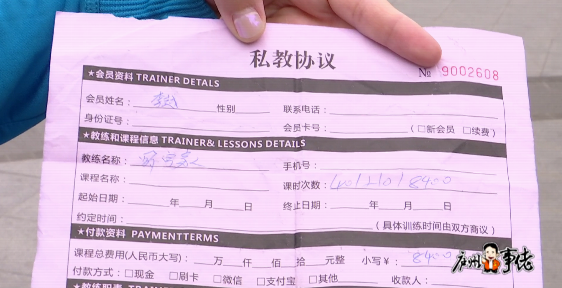 私教协议
№ 9002608
★会员资料 TRAINER DETALS
会员姓名： 性别 联系电话：
身份证号： 会员卡号： （□新会员 □续费）
★教练和课程信息 TRAINER& LESSONS DETAILS
教练名称： 手机号：
课程名称： 课时次数：40/210/8400
起始日期： 年 月 日 终止日期： 年 月 日
约定时间： （具体训练时间由双方商议）
付款资料 PAYMENTTERMS
课程总费用(人民币大写)： 万 仟 佰 拾 元 小写￥：8400
付款方式：□现金 □刷卡 □微信 □支付宝 □其他 收款人：
事